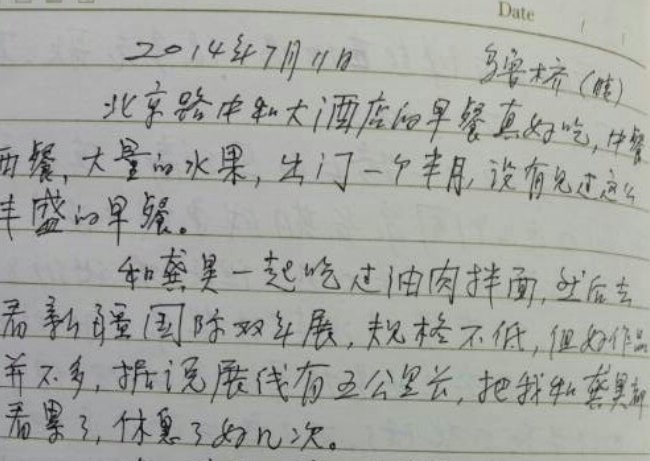 Date
2014年7月11日 乌鲁木齐(晴)
北京路中和大酒店的早餐真好吃,中餐
西餐,大量的水果,出门一个半月,没有见过这么
丰盛的早餐。
和龚昊一起吃过油肉拌面,然后去
看新疆国际双年展,规格不低,但好作品
并不多,据说展线有五公里长,把我和龚昊都
看累了,休息了好几次。